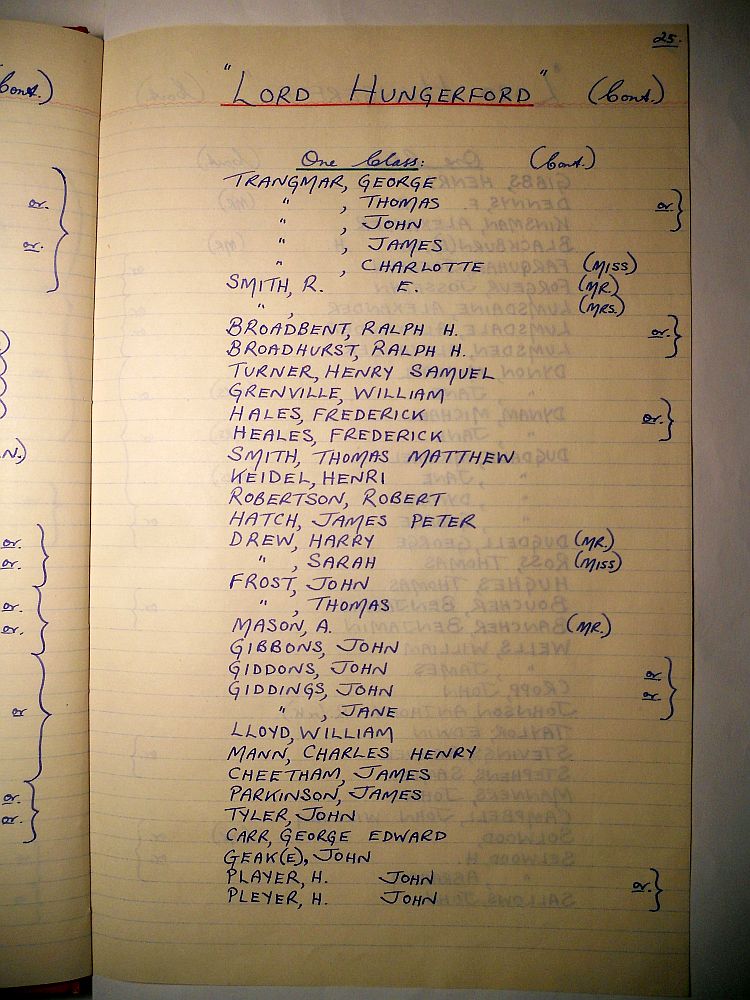 25.
Cont.)
"LORD HUNGERFORD" (Cont.)
One Class: (Cont.)
TRANGMAR, GEORGE
" , THOMAS or }
" , JOHN
" , JAMES
" , CHARLOTTE (MISS)
SMITH, R. E. (MR.)
" , (MRS.)
BROADBENT, RALPH H. or. }
BROADHURST, RALPH H.
TURNER, HENRY SAMUEL
GRENVILLE, WILLIAM
HALES, FREDERICK or. }
HEALES, FREDERICK
SMITH, THOMAS MATTHEW
KEIDEL, HENRI
ROBERTSON, ROBERT
HATCH, JAMES PETER
DREW, HARRY (MR.)
" , SARAH (MISS)
FROST, JOHN
" , THOMAS
MASON, A. (MR.)
GIBBONS, JOHN
GIDDONS, JOHN or. }
GIDDINGS, JOHN or.
" , JANE
LLOYD, WILLIAM
MANN, CHARLES HENRY
CHEETHAM, JAMES
PARKINSON, JAMES
TYLER, JOHN
CARR, GEORGE EDWARD
GEAK(E), JOHN
PLAYER, H. JOHN or. }
PLEYER, H. JOHN